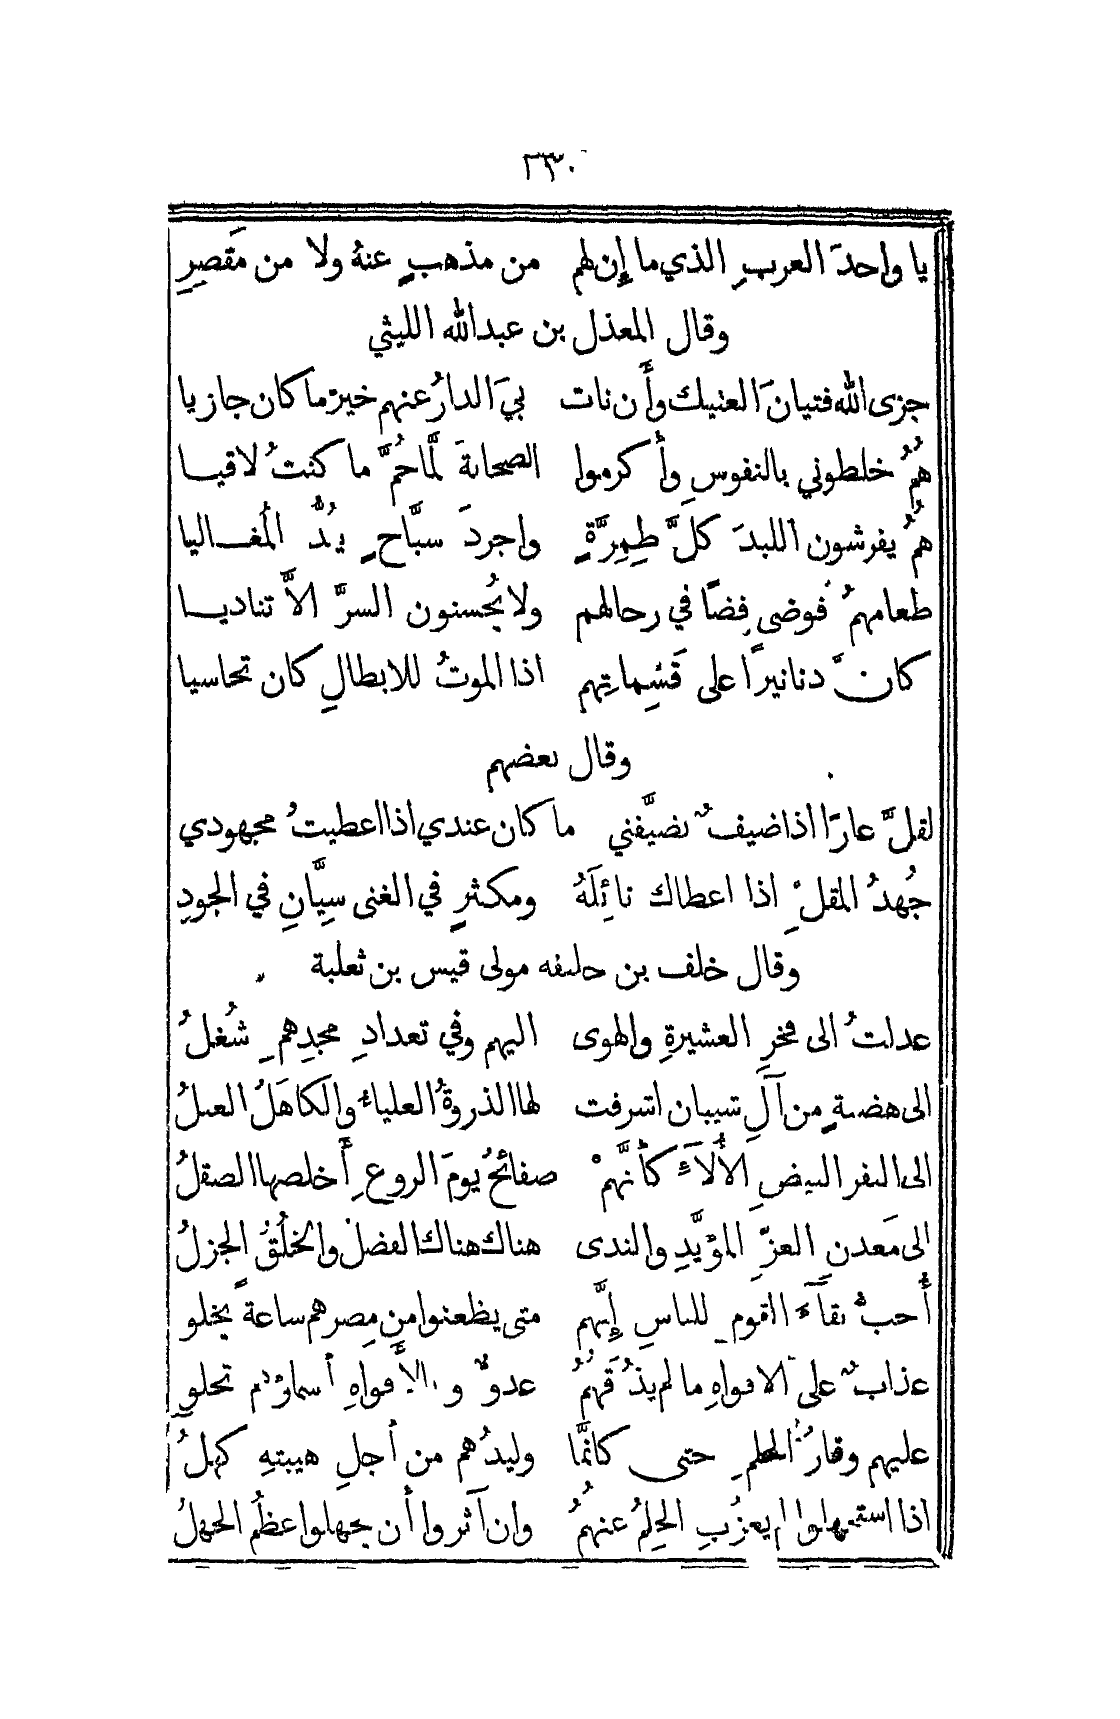 ٢٣٠
يا واحدَ العربِ الذي ما إن لهم من مذهبٍ عنهُ ولا من مَقصِرِ
وقال المعذل بن عبدالله الليثي
جزى الله فتيانَ العتيك وأَن نات بيَ الدارُ عنهم خيرَ ما كان جازيا
هُمُ خلطوني بالنفوسِ وأَكرموا الصحابةَ لمَّا حُمَّ ما كنتُ لاقيا
هُمُ يفرشون اللبدَ كلَّ طِمِرَّةٍ واجردَ سبَّاحٍ يبُذُّ المُغاليا
طعامهمُ فوضى فضًا في رحالهم ولا يُحسنون السرَّ الاَّ تناديا
كانَّ دنانيرًا على قَسِماتِهم اذا الموتُ للابطالِ كان تحاسيا
وقال بعضهم
لقلَّ عارًا اذا ضيفٌ تضيَّفني ما كان عندي اذا اعطيتُ مجهودي
جُهدُ المقلِّ اذا اعطاك نائِلَهُ ومكثرٍ في الغنى سِيَّانِ في الجودِ
وقال خلف بن خليفه مولى قيس بن ثعلبة
عدلتُ الى فخرِ العشيرةِ والهوى اليهم وفي تعدادِ مجدِهمِ شُغلُ
الى هضبةٍ من آلِ شيبان اشرفت لها الذروةُ العلياءُ والكاهَلُ العبلُ
الى النفر البيضِ الأُلاَءَ كأَنَّهمْ صفائحُ يومَ الروعِ أَخلصها الصقلُ
الى مَعدن العزِّ المؤَيَّدِ والندى هناك هناك الفضلُ والخلُقُ الجزلُ
أُحبُّ بقآءَ القومِ للناسِ إِنَّهم متى يظعنوا من مِصرهم ساعةً يخلو
عذابٌ على الافواهِ ما لم يذُقهُمُ عدوٌّ وبالأَفواهِ أسماؤهم تحلو
عليهم وقارُ الحلمِ حتى كانَّما وليدُهم من أَجلِ هيبتهِ كهلُ
اذا استجهلوا لم يعزُبِ الحِلمُ عنهمُ وان آثروا أَن يجهلوا عظُم الجهلُ